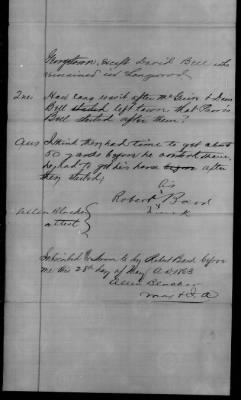 Georgetown, except David Bell who
remained in Longwood
Ques How long was it after McGuin & Dave
Bell started left town that Parris
Bell started after them?
Ans I think they had time to get about
50 yards before he
he had to get his horse before after
they started,
his
Robert X Bard
mark
Allen Blacker
attest
Subscribed & sworn to by Robert Bard before
me this 28th day of May A.D. 1863
Allen Blacker
Maj & J.A